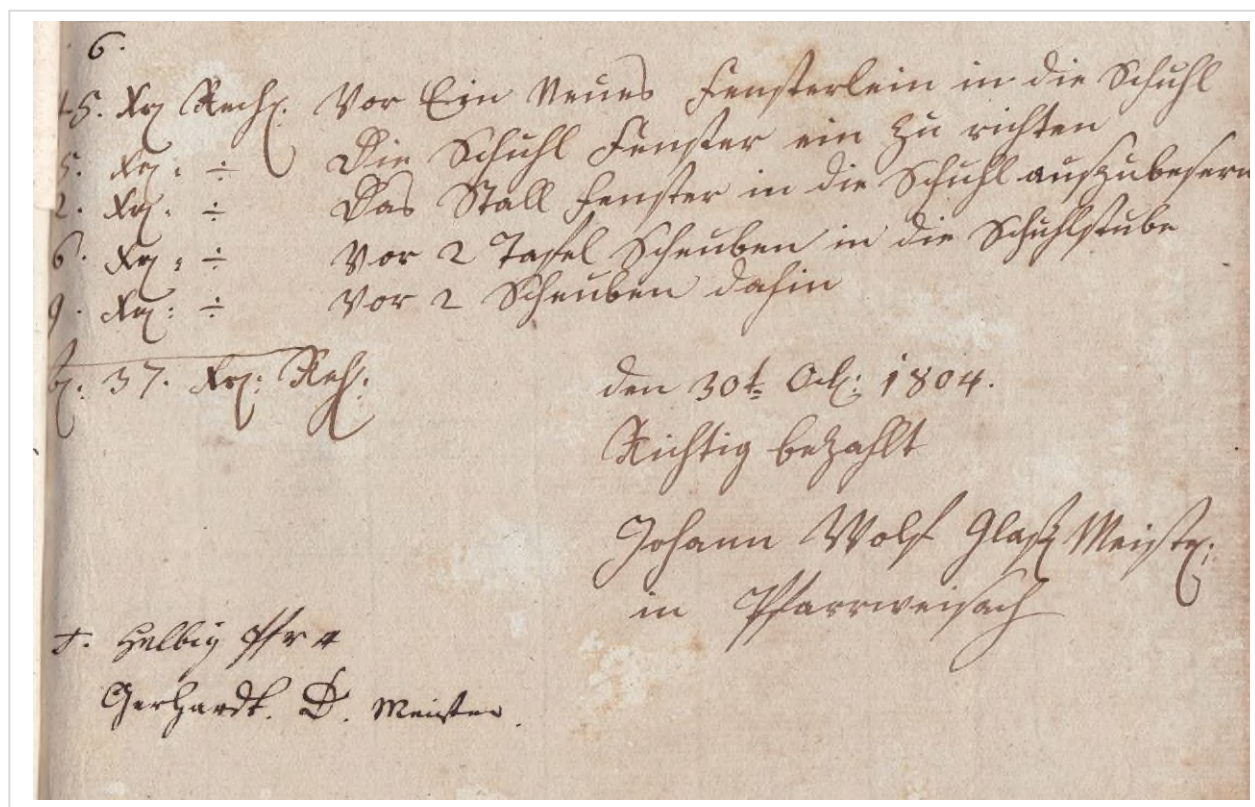 6.
15. Xr Rech. Vor Ein Neues Fensterlein in die Schuhl
5. Xr: ÷ Die Schuhl Fenster ein zu richten
2. Xr. ÷ Das Stall Fenster in die Schuhl auszubesern
6. Xr: ÷ Vor 2 Tafel Scheuben in die Schuhlstube
9. Xr: ÷ Vor 2 Scheuben dahin
37. Xr: Rh:
den 30t Oct: 1804.
Richtig bezahlt
Johann Wolf Glaß Meistr:
in Pfarrweisach
Helbig Pfr
Gerhardt. D. Meister.